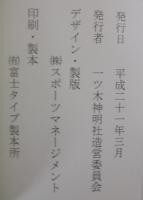 発行日　平成二十一年三月
発行者　一ツ木神明社造営委員会
デザイン・製版
㈱スポーツマネージメント
印刷・製本
㈲富士タイプ製本所